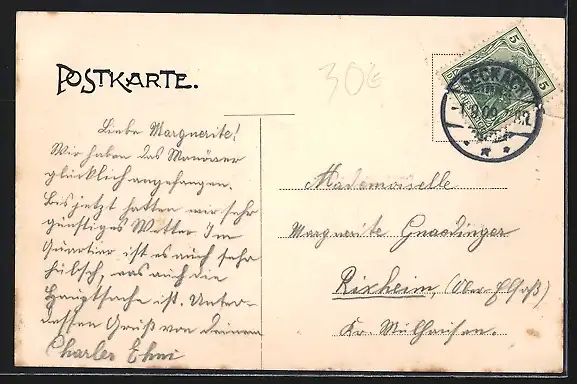 POSTKARTE.
30€
5
5
SECKACH
Liebe Marguerite!
Wir haben das Manöver
glücklich angefangen.
Bis jetzt hatten wir sehr
günstiges Wetter Im
Quartier ist es auch sehr
hübsch, was auch die
Hauptsache ist. Unter-
dessen Gruß von deinem
Charles Ehni
Mademoiselle
Marguerite Gnaedinger
Rixheim, (Ober-Elsaß)
Kr. Mülhausen.